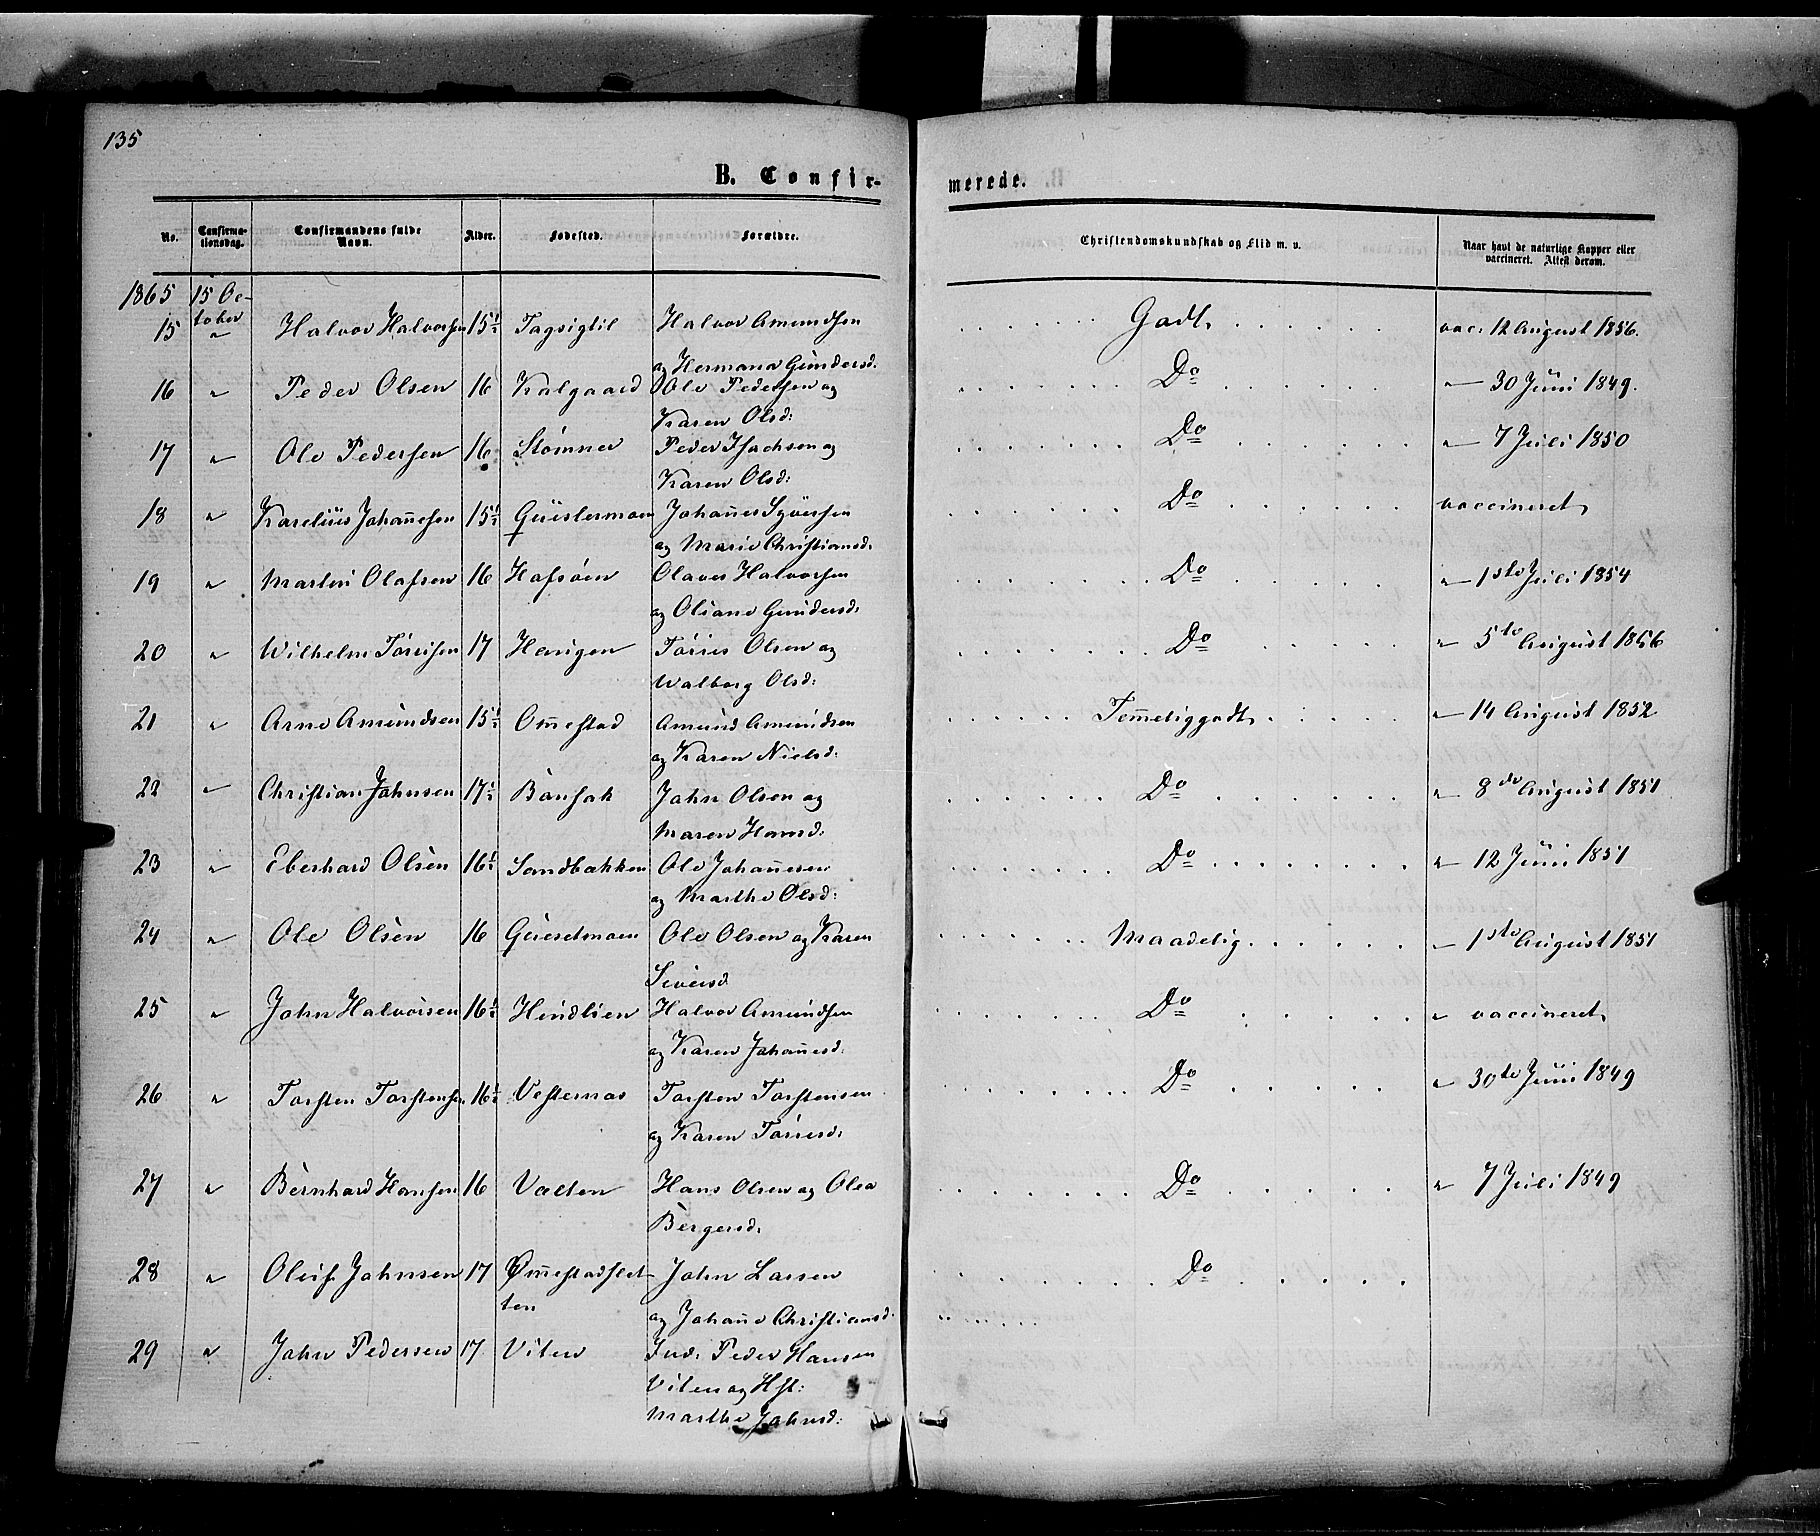 135
B. Confir-
merede.
No. Confirma-tionsdag. Confirmandens fulde Navn. Alder. Fødested. Forældre. Christendomskundskab og Flid m. v. Naar havt de naturlige Kopper eller vaccineret. Attest derom.
1865 15 Oc-
tober
15 " Halvor Halvorsen 15½ Tagsigtil Halvor Amundsen Godt. vac: 12 August 1856.
og Hermana Gundersd.
16 " Peder Olsen 16 Kalgaard Ole Pedersen og Do " 30 Juni 1849.
Karen Olsd:
17 " Ole Pedersen 16 Stømner Peder Isachsen og Do " 7 Juli 1850
Karen Olsd:
18 " Karelius Johannesen 15½ Johannes Syversen Do vaccineret,
og Marie Christiansd,
19 " Martin Olafsen 16 Hafsøen Olaves Halvorsen Do " 1ste Juli 1854
og Oliane Gundersd,
20 " Wilhelm Torrisen 17 Haugen Torres Olsen og Do " 5te August 1856
Walborg Olsd:
21 " Arne Amundsen 15½ Om̅estad Amund Amundsen Tem̅eliggodt, " 14 August 1852
og Karen Nielsd:
22 " Christian Johnsen 17½ Bausak John Olsen og Do " 8de August 1851
Maren Hansd:
23 " Eberhard Olsen 16½ Sandbakken Ole Johannesen Do " 12 Juni 1851
og Marthe Olsd:
24 " Ole Olsen 16 Ole Olsen og Karen Maadelig. " 1ste August 1851
Siversd
25 " John Halvorsen 16½ Hindlien Halvor Amundsen Do " vaccineret,
og Karen Johannesd:
26 " Torsten Torstensen 16½ Vesternas Torsten Torstensen Do " 30te Juni 1849
og Karen Torresd,
27 " Bernhard Hansen 16 Valten Hans Olsen og Olea Do " 7 Juli 1849
Bergersd,
28 " Oluf Johnsen 17 Om̅estadslet- John Larsen Do
ten
og Johan̅e Christiansd.
29 " John Pedersen 17 Viten Ind. Peder Hansen
Viten og Hst:
Marthe Johnsd: